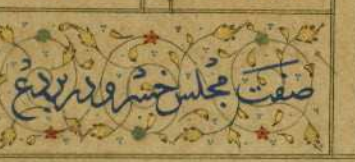 صفت مجلس خسرو در بردع